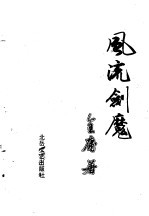 風流劍魔
著
北岳文艺出版社